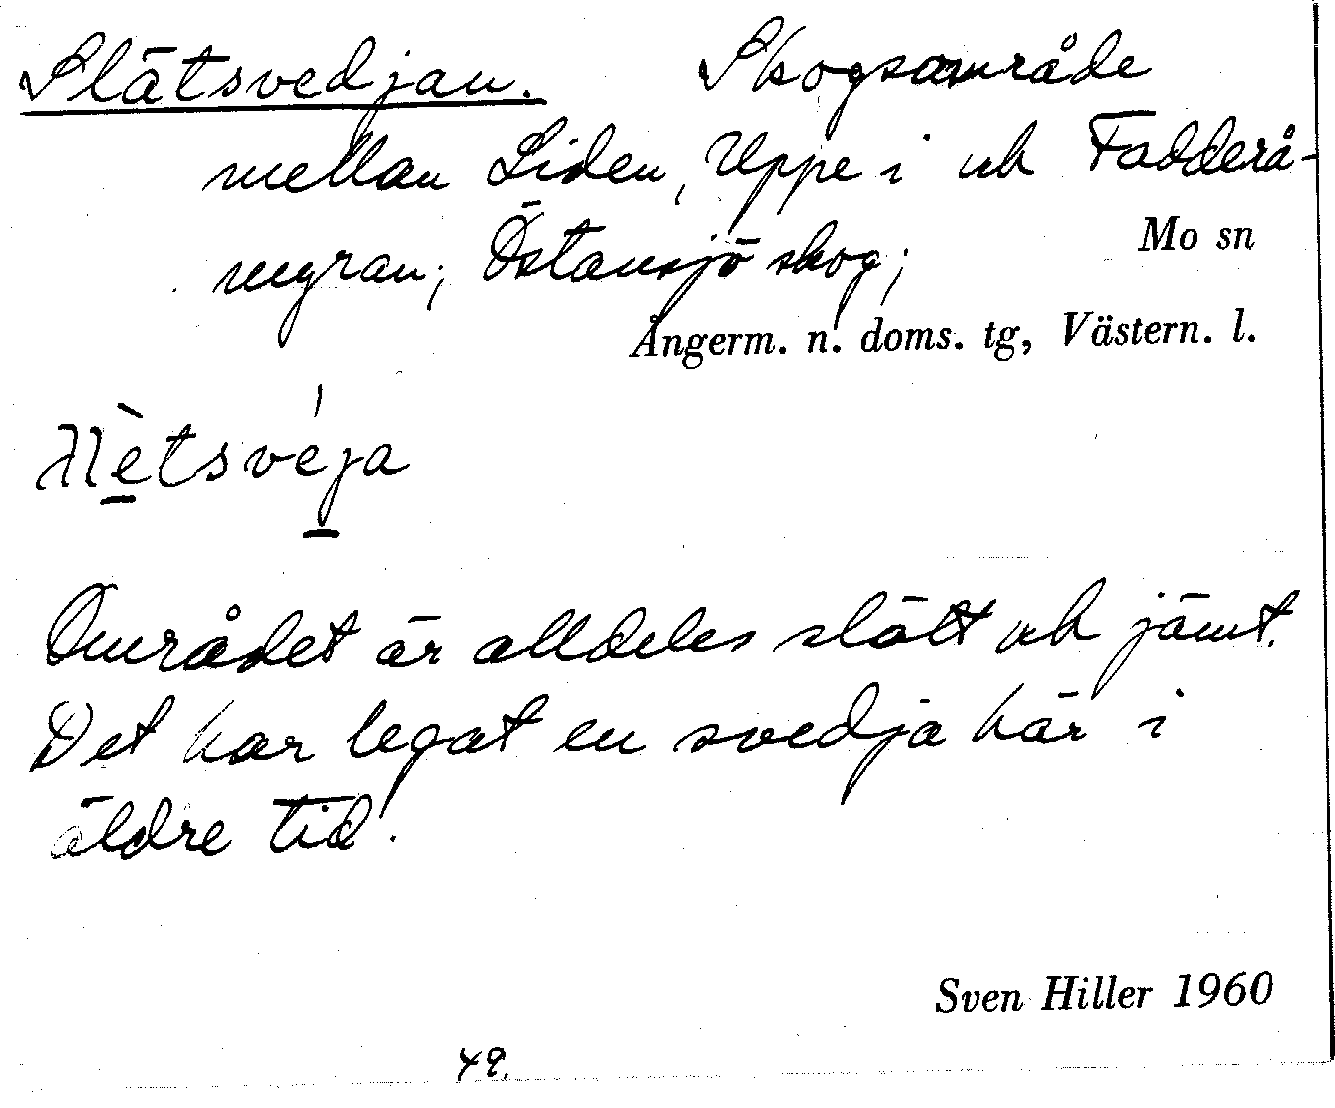 Slätsvedjan. Skogsområde
mellan Liden, Uppe i och Fadderå-
myran; Östansjö skog;
Mo sn
Ångerm. n. doms. tg, Västern. l.
Området är alldeles slätt och jämt.
Det har legat en svedja här i
äldre tid.
Sven Hiller 1960